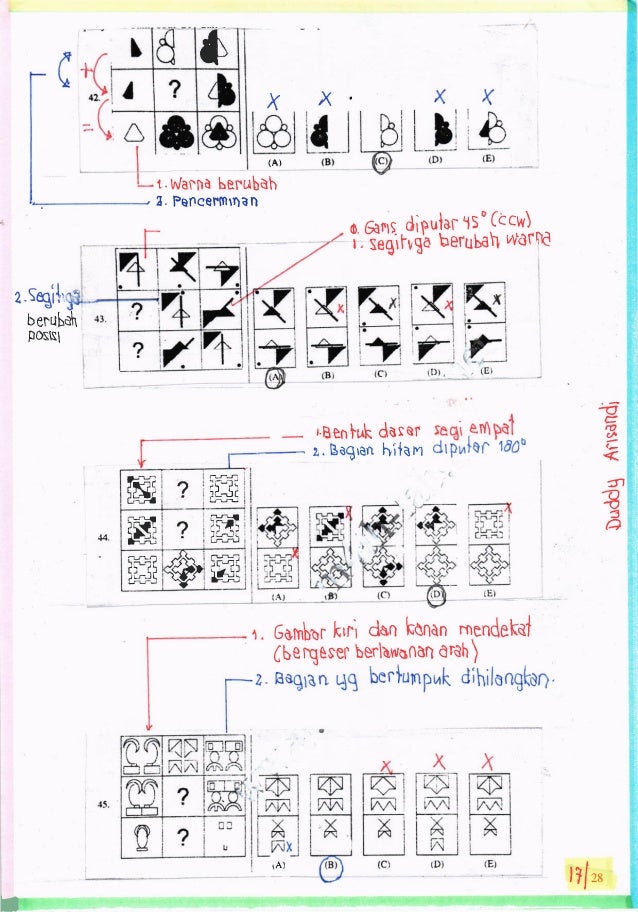 42.
?
(A) (B) (C) (D) (E)
1. Warna berubah
2. Pencerminan
0. Garis diputar 45° (ccw)
1. Segitiga berubah warna
2. Segitiga
berubah
posisi
43.
?
?
(A) (B) (C) (D) (E)
1. Bentuk dasar segi empat
2. Bagian hitam diputar 180°
Duddy Arisandi
44.
?
?
(A) (B) (C) (D) (E)
1. Gambar kiri dan kanan mendekat
(bergeser berlawanan arah)
2. Bagian yg bertumpuk dihilangkan.
45.
?
?
(A) (B) (C) (D) (E)
17/28